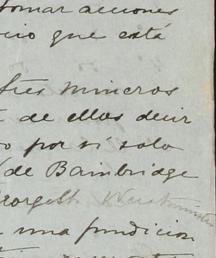 tomar acciones
que está
tres mineros
de ellos decir
por si solo
de Bambridge
George H Westminster
una fundicion